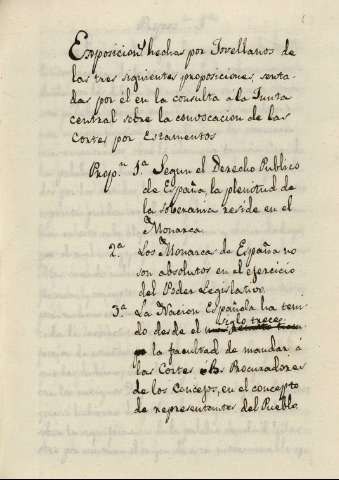 Exposicion hechas por Jovellanos de
las tres siguientes proposiciones, senta-
das por él en la consulta á la Junta
central sobre la convocacion de las
Cortes por Estamentos
Propon 1ª Segun el Derecho Publico
de España, la plenitud de
la soberania reside en el
Monarca.
2ª Los Monarcas de España no
son absolutos en el ejercicio
del Poder Legislativo.
3ª La Nacion Española ha teni-
do desde el siglo trece
la facultad de mandar á
las Cortes Procuradores
de los Concejos, en el concepto
de representantes del Pueblo.